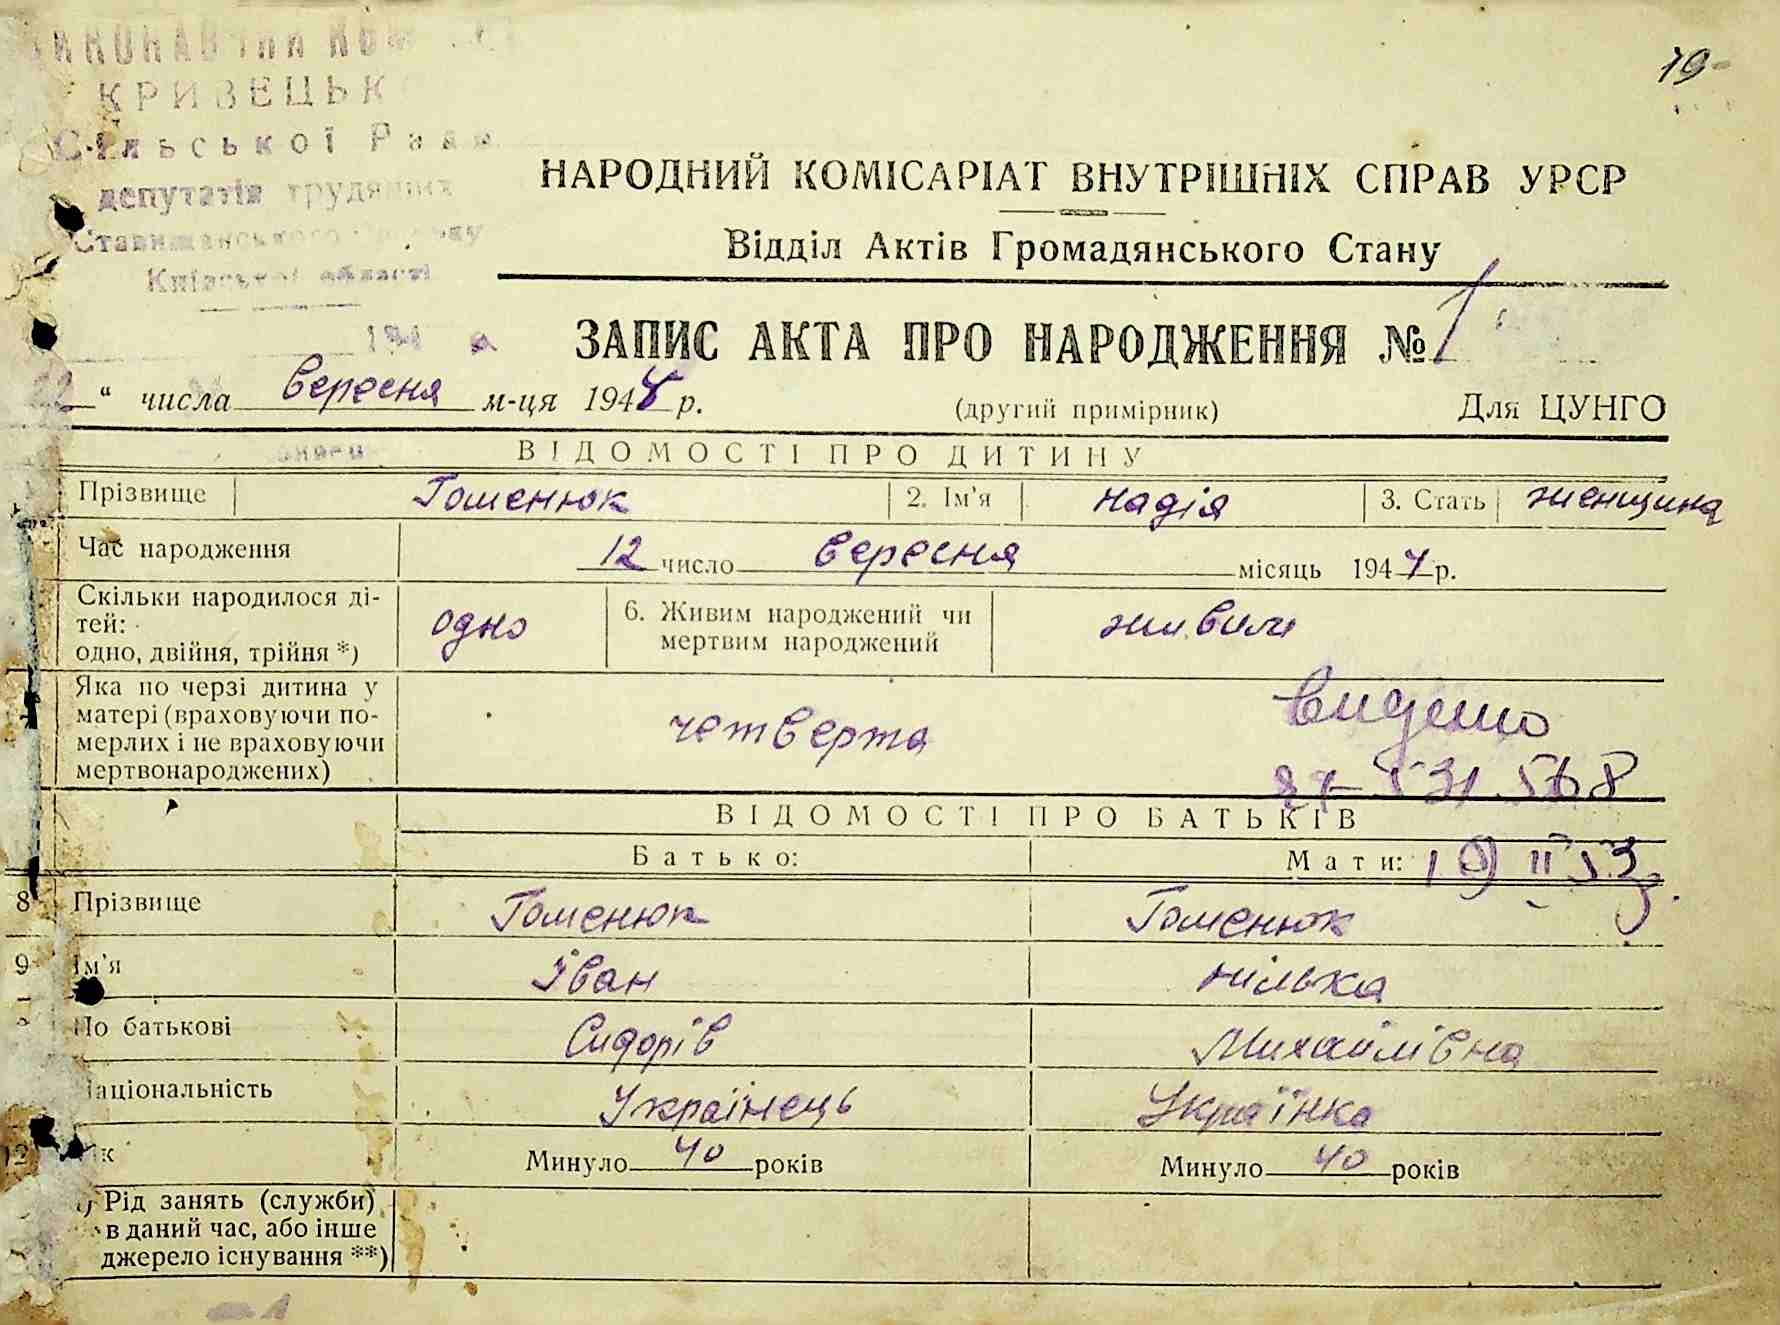 19
КРИВЕЦЬК
Сільської Ради
депутатів трудящих
Ставищанського
Київської області
НАРОДНИЙ КОМІСАРІАТ ВНУТРІШНІХ СПРАВ УРСР
Відділ Актів Громадянського Стану
ЗАПИС АКТА ПРО НАРОДЖЕННЯ № 1
" числа вересня м-ця 1944 р. (другий примірник) Для ЦУНГО
ВІДОМОСТІ ПРО ДИТИНУ
Прізвище Гоменюк 2. Ім'я Надія 3. Стать женщина
Час народження 12 число вересня місяць 1944 р.
Скільки народилося ді-
тей:
одно, двійня, трійня *) одно 6. Живим народжений чи
мертвим народжений живим
Яка по черзі дитина у
матері (враховуючи по-
мерлих і не враховуючи
мертвонароджених) четверта
ВІДОМОСТІ ПРО БАТЬКІВ
Батько: Мати: 19 II 53
8 Прізвище Гоменюк Гоменюк
9 Ім'я Іван
По батькові Сидорів Михайлівна
Національність Українець Українка
Минуло 40 років Минуло 40 років
Рід занять (служби)
в даний час, або інше
джерело існування **)